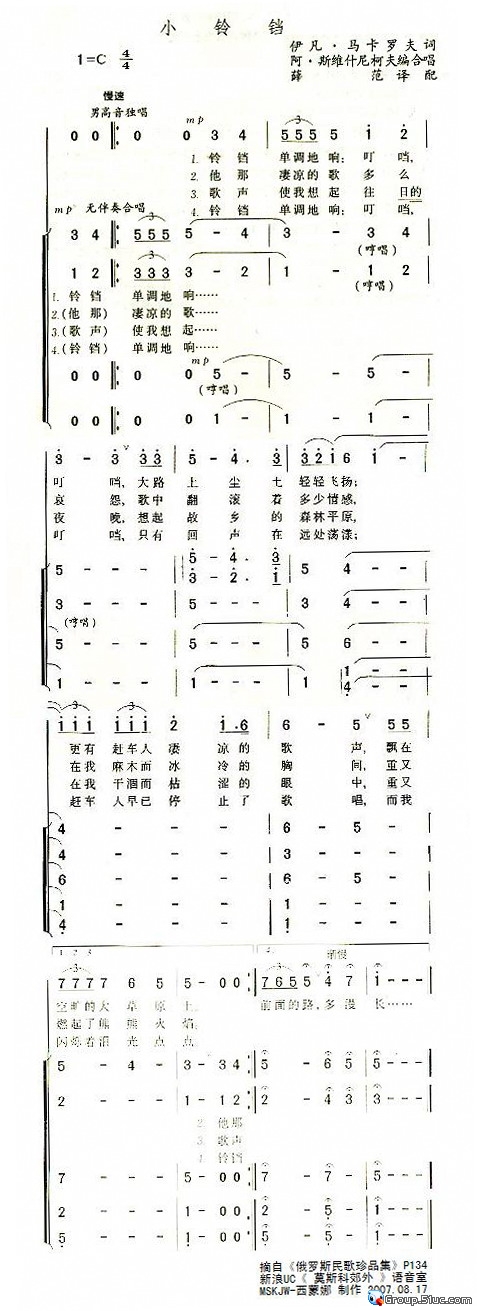 小 铃 铛
1=C 4/4
伊凡·马卡罗夫词
阿·斯维什尼柯夫编合唱
薛 范译配
慢速
男高音独唱
mp
0 0 0 0 3 4 5 5 5 5 i 2
1. 铃铛 单调地响：叮 当，
2. 他那 凄凉的歌 多 么
3. 歌声 使我想起 往 日的
4. 铃铛 单调地响：叮 当，
mp 无伴奏合唱
3 4 5 5 5 5 - 4 3 - 3 4
(哼唱)
1 2 3 3 3 3 - 2 1 - 1 2
(哼唱)
1. 铃 铛 单调地 响……
2.(他 那) 凄凉的 歌……
3.(歌 声) 使我想 起……
4.(铃 铛) 单调地 响……
mp
0 0 0 0 5 - 5 - 5 -
(哼唱)
0 0 0 0 1 - 1 - 1 -
3 - 3 3 3 5 - 4. 3 3 2 1 6 1 -
叮 当，大路 上 尘 土 轻轻飞 扬；
哀 怨，歌中 翻 滚 着 多少情 感，
夜 晚，想起 故 乡 的 森林平 原，
叮 当，只有 回 声 在 远处荡 漾；
5 - - - 5 - 4. 3 5 4 - -
3 - 2. 1
3 - - - 5 - - - 5 4 - -
(哼唱)
1 - - - 5 - - - 5 1 - -
1 - - - 1 - - - 1 4 - -
i i i i i i 2 i. 6 6 - 5 5 5
更有 赶车人 凄 凉的 歌 声，飘在
在我 麻木而 冰 冷的 胸 间，重又
在我 干涸而 枯 涩的 眼 中，重又
赶车 人早已 停 止了 歌 唱，而我
4 - - - 6 - 5 -
4 - - -
6 - - - 6 - 5 -
1 - - - 1 - - -
4 - - - 1 - - -
1. 2. 3. 4. 渐慢
7 7 7 7 7 6 5 5 - 0 0 7 6 5 5 4 7 1 - -
空旷的大 草 原 上。 前面的路，多 漫 长……
燃起了熊 熊 火 焰。
闪烁着泪 光 点 点。
5 - 4 - 3 - 3 4 5 - 6 5 5 - -
2 - - - 1 - 1 2 2 - 4 3 3 - -
2. 他那
3. 歌声
4. 铃铛
7 - - - 5 - 0 0 7 - 1 7 1 - -
2 - - - 5 - 0 0 2 - 5 5 1 - -
5 - - - 5 - 0 0 5 - 5 5 1 - -
摘自《俄罗斯民歌珍品集》P134
新浪UC《 莫斯科郊外 》语音室
MSKJW-西蒙娜 制作 2007.08.17
Group.51uc.com